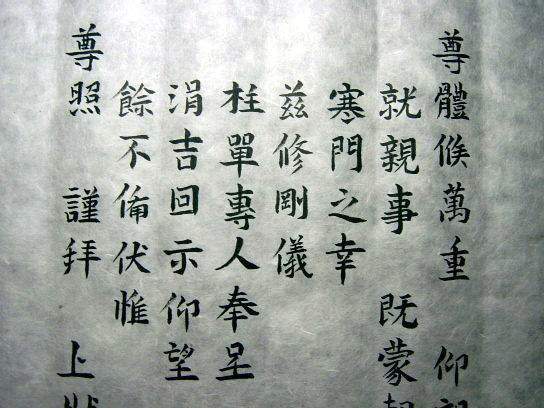 尊體候萬重 仰
就親事 既蒙
寒門之幸
茲修剛儀
柱單專人奉呈
涓吉回示仰望
餘不備伏惟
尊照 謹拜 上狀